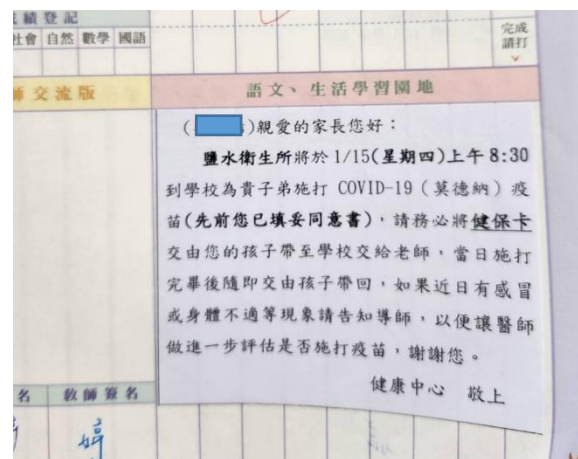 績登記
社會 自然 數學 國語
完成
請打
師交流版
語文、生活學習園地
( )親愛的家長您好：
鹽水衛生所將於 1/15(星期四)上午 8:30
到學校為貴子弟施打 COVID-19（莫德納）疫
苗(先前您已填妥同意書)，請務必將健保卡
交由您的孩子帶至學校交給老師，當日施打
完畢後隨即交由孩子帶回，如果近日有感冒
或身體不適等現象請告知導師，以便讓醫師
做進一步評估是否施打疫苗，謝謝您。
健康中心 敬上
名 教師簽名
婷